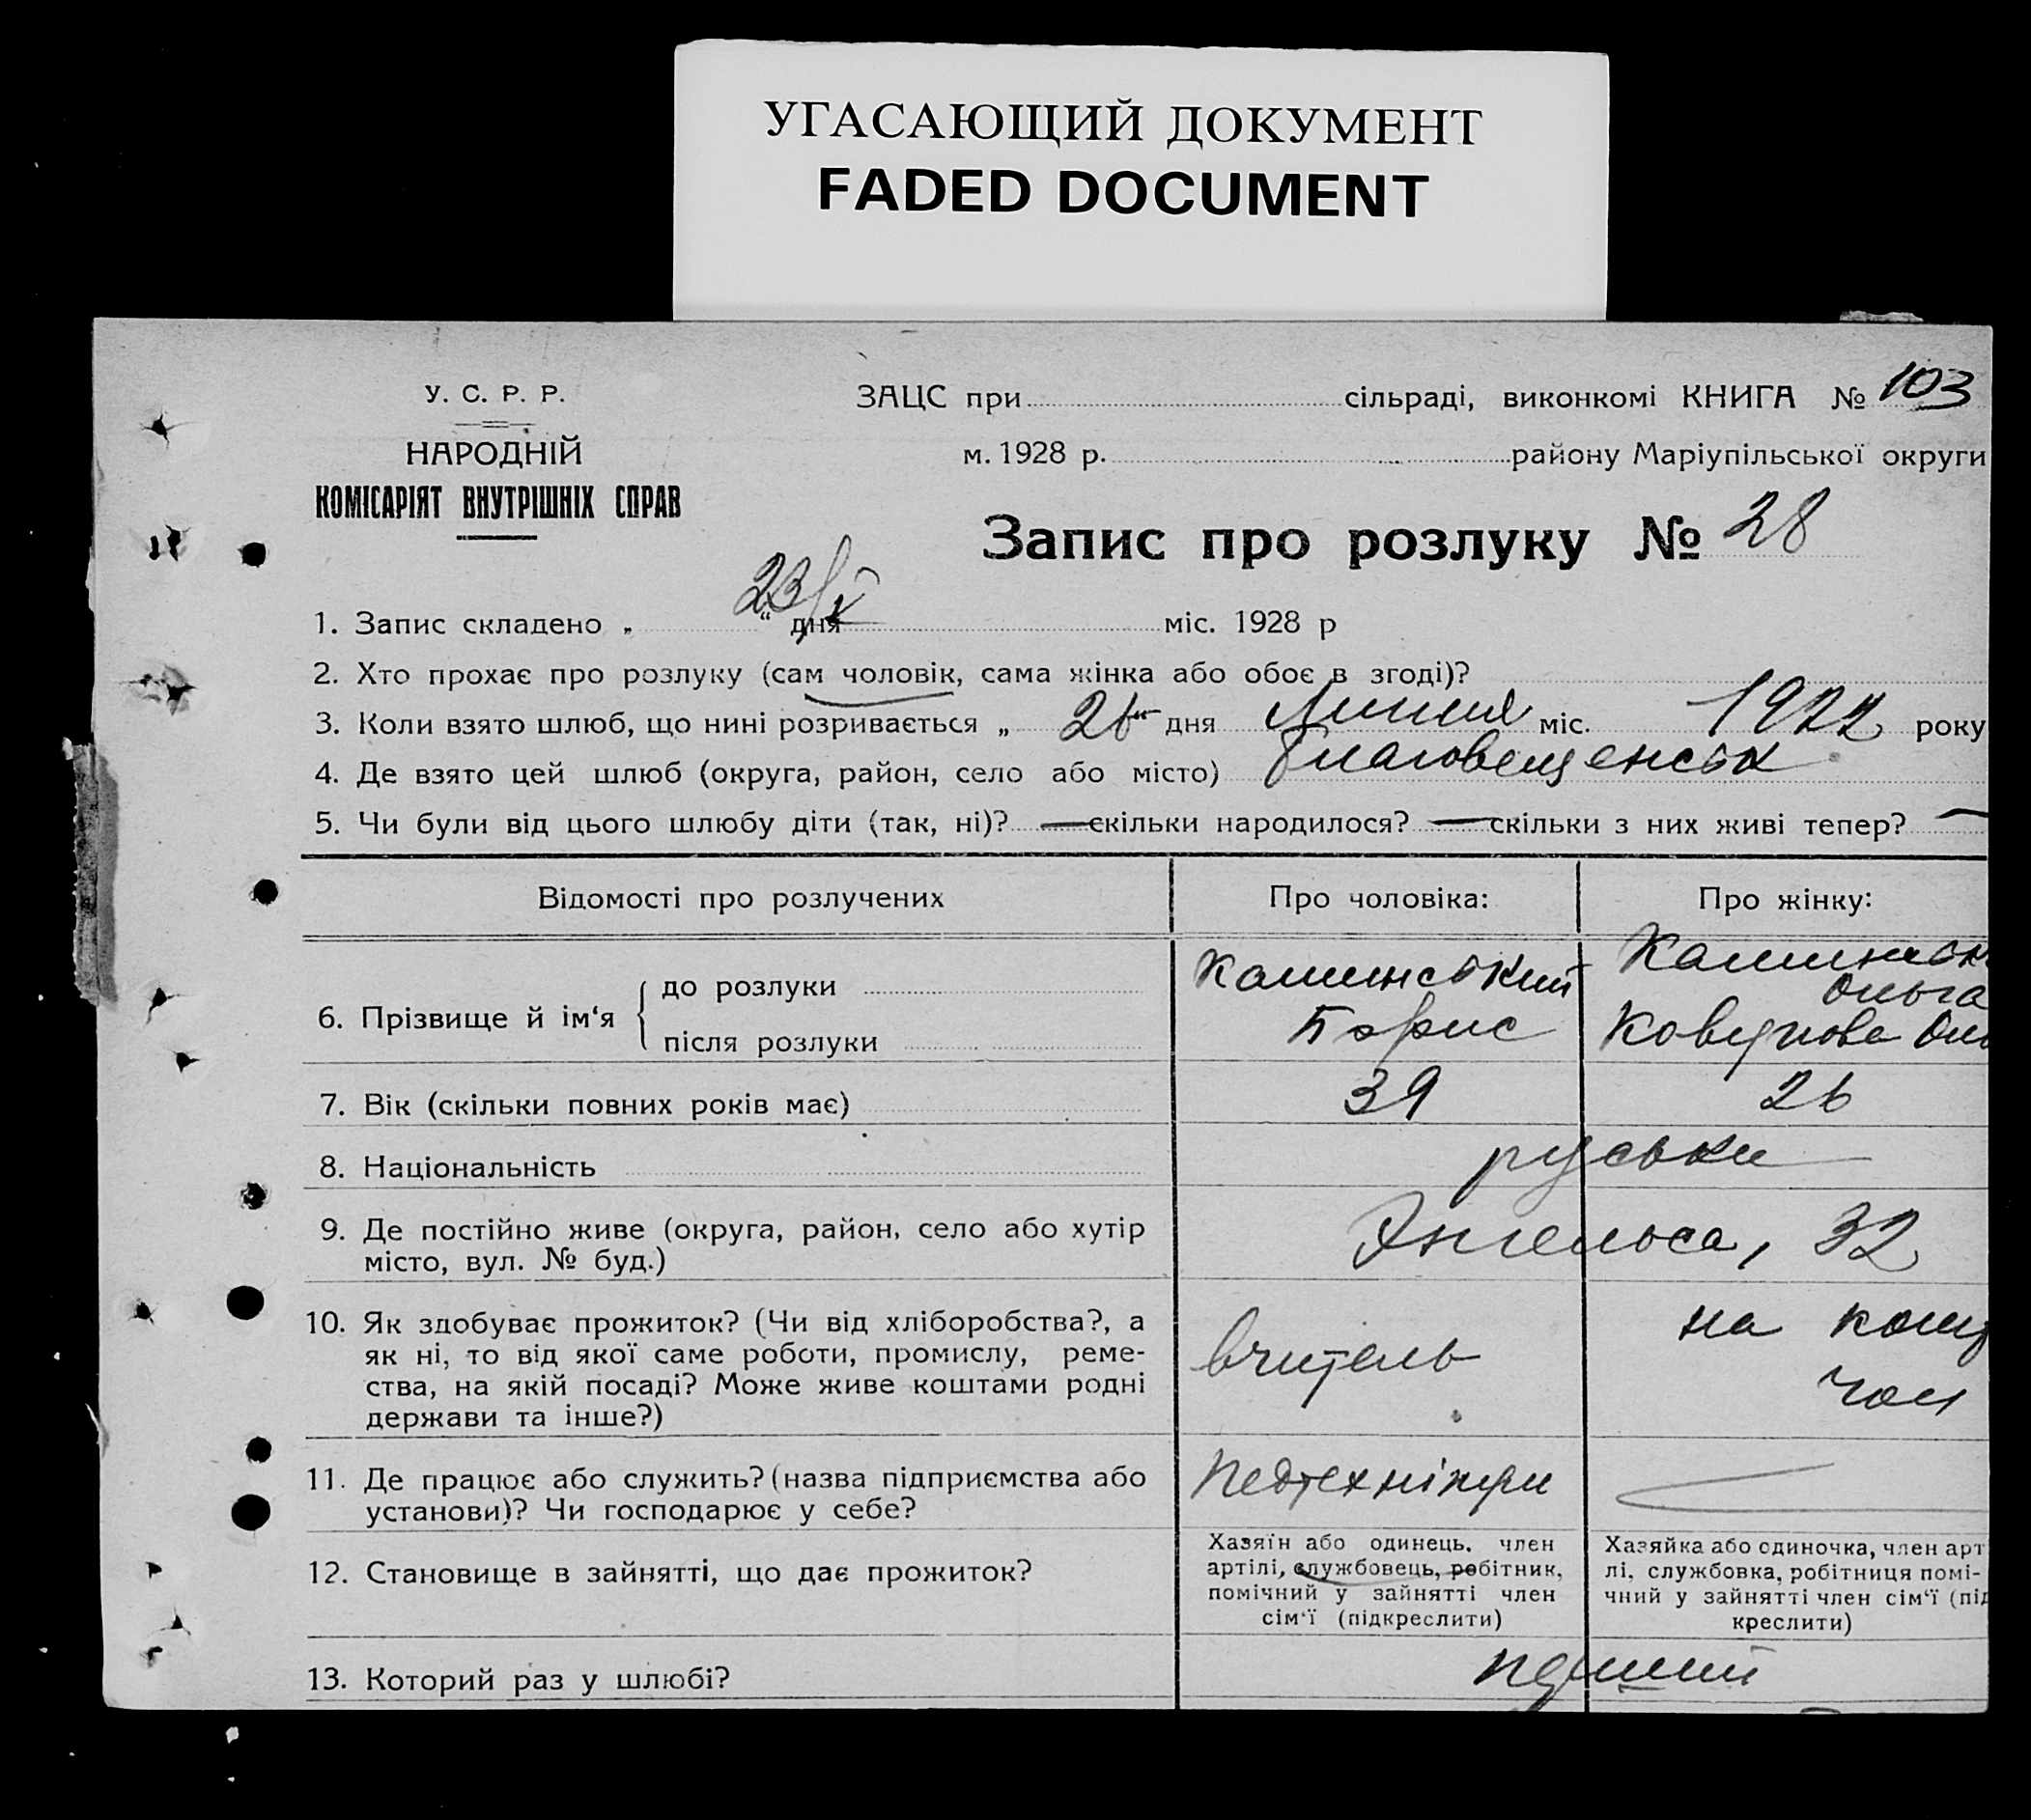 УГАСАЮЩИЙ ДОКУМЕНТ
FADED DOCUMENT
У. С. Р. Р.
НАРОДНІЙ
КОМІСАРІЯТ ВНУТРІШНІХ СПРАВ
ЗАЦС при сільраді, виконкомі КНИГА № 103
м. 1928 р. району Маріупільської округи
Запис про розлуку № 28
1. Запис складено „ 23/X “ дня міс. 1928 р
2. Хто прохає про розлуку (сам чоловік, сама жінка або обоє в згоді)?
3. Коли взято шлюб, що нині розривається „ 26 “ дня Липня міс. 1922 року
4. Де взято цей шлюб (округа, район, село або місто) Благовещенськ
5. Чи були від цього шлюбу діти (так, ні)? — скільки народилося? — скільки з них живі тепер? —
Відомості про розлучених
Про чоловіка:
Про жінку:
6. Прізвище й ім‘я { до розлуки
після розлуки
Каминський
Борис
Ольга
7. Вік (скільки повних років має) 39 26
8. Національність руськи
9. Де постійно живе (округа, район, село або хутір
місто, вул. № буд.)
Энгельса, 32
10. Як здобуває прожиток? (Чи від хліборобства?, а
як ні, то від якої саме роботи, промислу, реме-
ства, на якій посаді? Може живе коштами родні
держави та інше?)
вчитель
на кошт
чол
11. Де працює або служить? (назва підприємства або
установи)? Чи господарює у себе?
Педтехнікум
12. Становище в зайнятті, що дає прожиток?
Хазяїн або одинець, член
артілі, службовець, робітник,
помічний у зайнятті член
сім‘ї (підкреслити)
Хазяйка або одиночка, член арт
лі, службовка, робітниця помі-
чний у зайнятті член сім‘ї (під
креслити)
13. Которий раз у шлюбі? перший